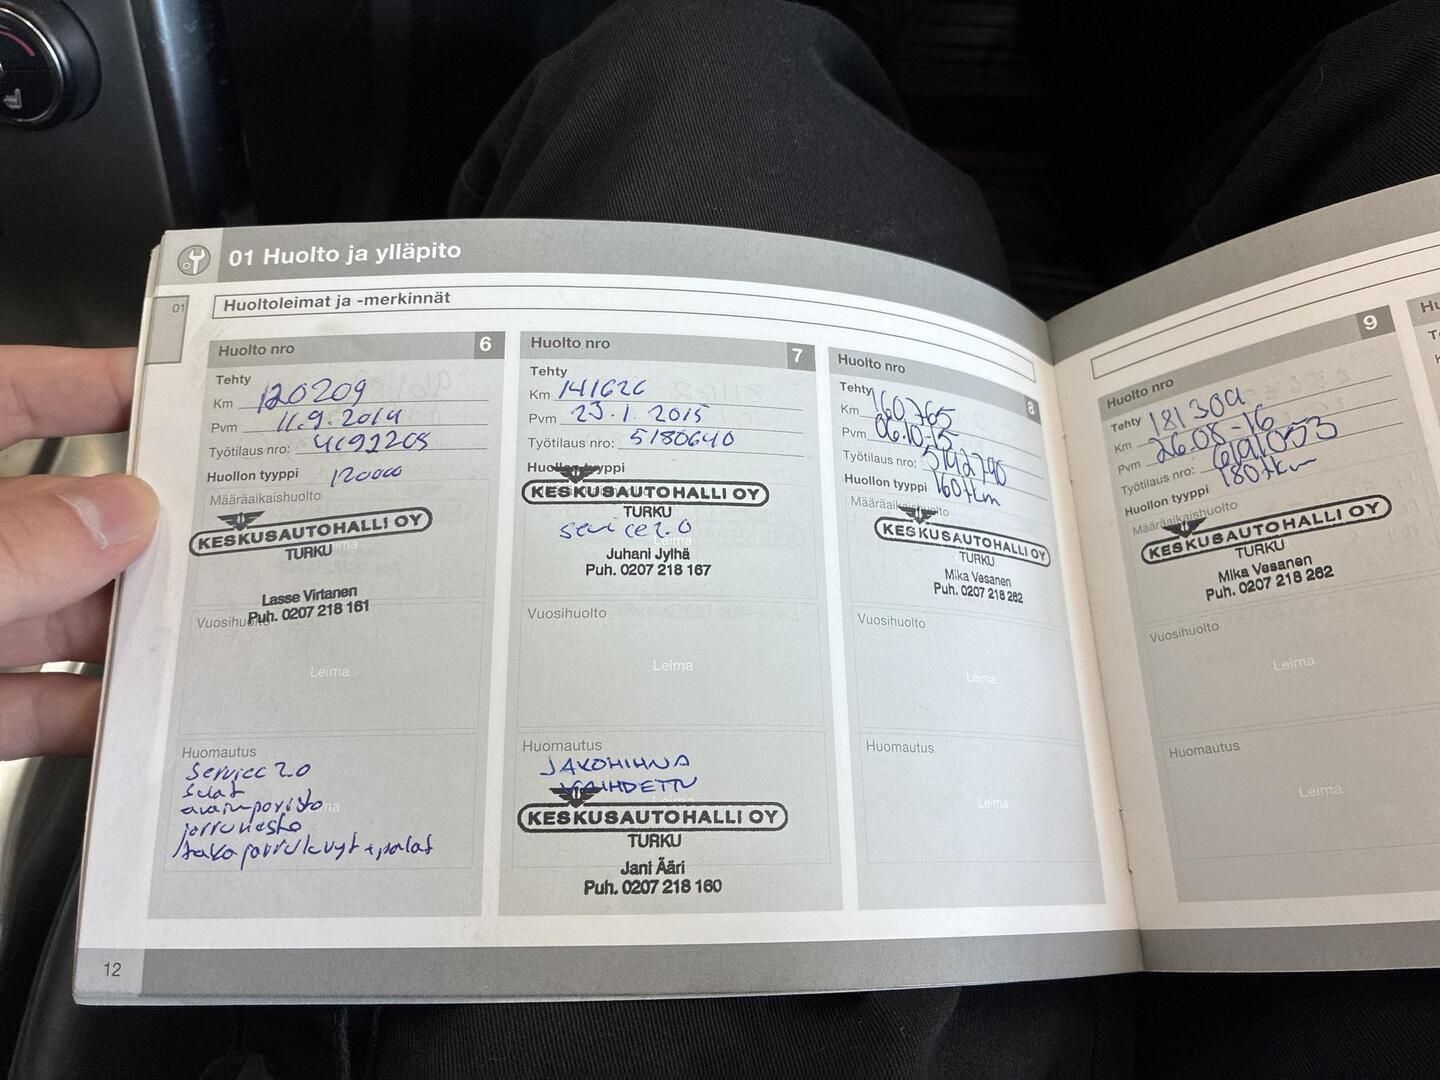 01 Huolto ja ylläpito
01
Huoltoleimat ja -merkinnät
Huolto nro 6
Tehty
Km 120209
Pvm 11.9.2014
Työtilaus nro: 4192205
Huollon tyyppi 120000
Määräaikaishuolto
KESKUSAUTOHALLI OY
TURKU
Lasse Virtanen
Puh. 0207 218 161
Vuosihuolto
Leima
Huomautus
Service 2.0
sulat
avainparisto
jarruneste
taka jarrulevyt + palat
12
Huolto nro 7
Tehty
Km 141626
Pvm 23.1.2015
Työtilaus nro: 5180640
Huollon tyyppi
KESKUSAUTOHALLI OY
TURKU
service 2.0
Leima
Juhani Jylhä
Puh. 0207 218 167
Vuosihuolto
Leima
Huomautus
JAKOHIHNA
VAIHDETTU
KESKUSAUTOHALLI OY
TURKU
Jani Ääri
Puh. 0207 218 160
Huolto nro 8
Tehty
Km 160765
Pvm 06.10-15
Työtilaus nro: 5192790
Huollon tyyppi 160tkm
Määräaikaishuolto
KESKUSAUTOHALLI OY
TURKU
Mika Vesanen
Puh. 0207 218 262
Vuosihuolto
Leima
Huomautus
Leima
Huolto nro 9
Tehty
Km
Pvm 26.08-16
Työtilaus nro: 6191053
Huollon tyyppi 180tkm
Määräaikaishuolto
KESKUSAUTOHALLI OY
TURKU
Mika Vesanen
Puh. 0207 218 262
Vuosihuolto
Leima
Huomautus
Leima